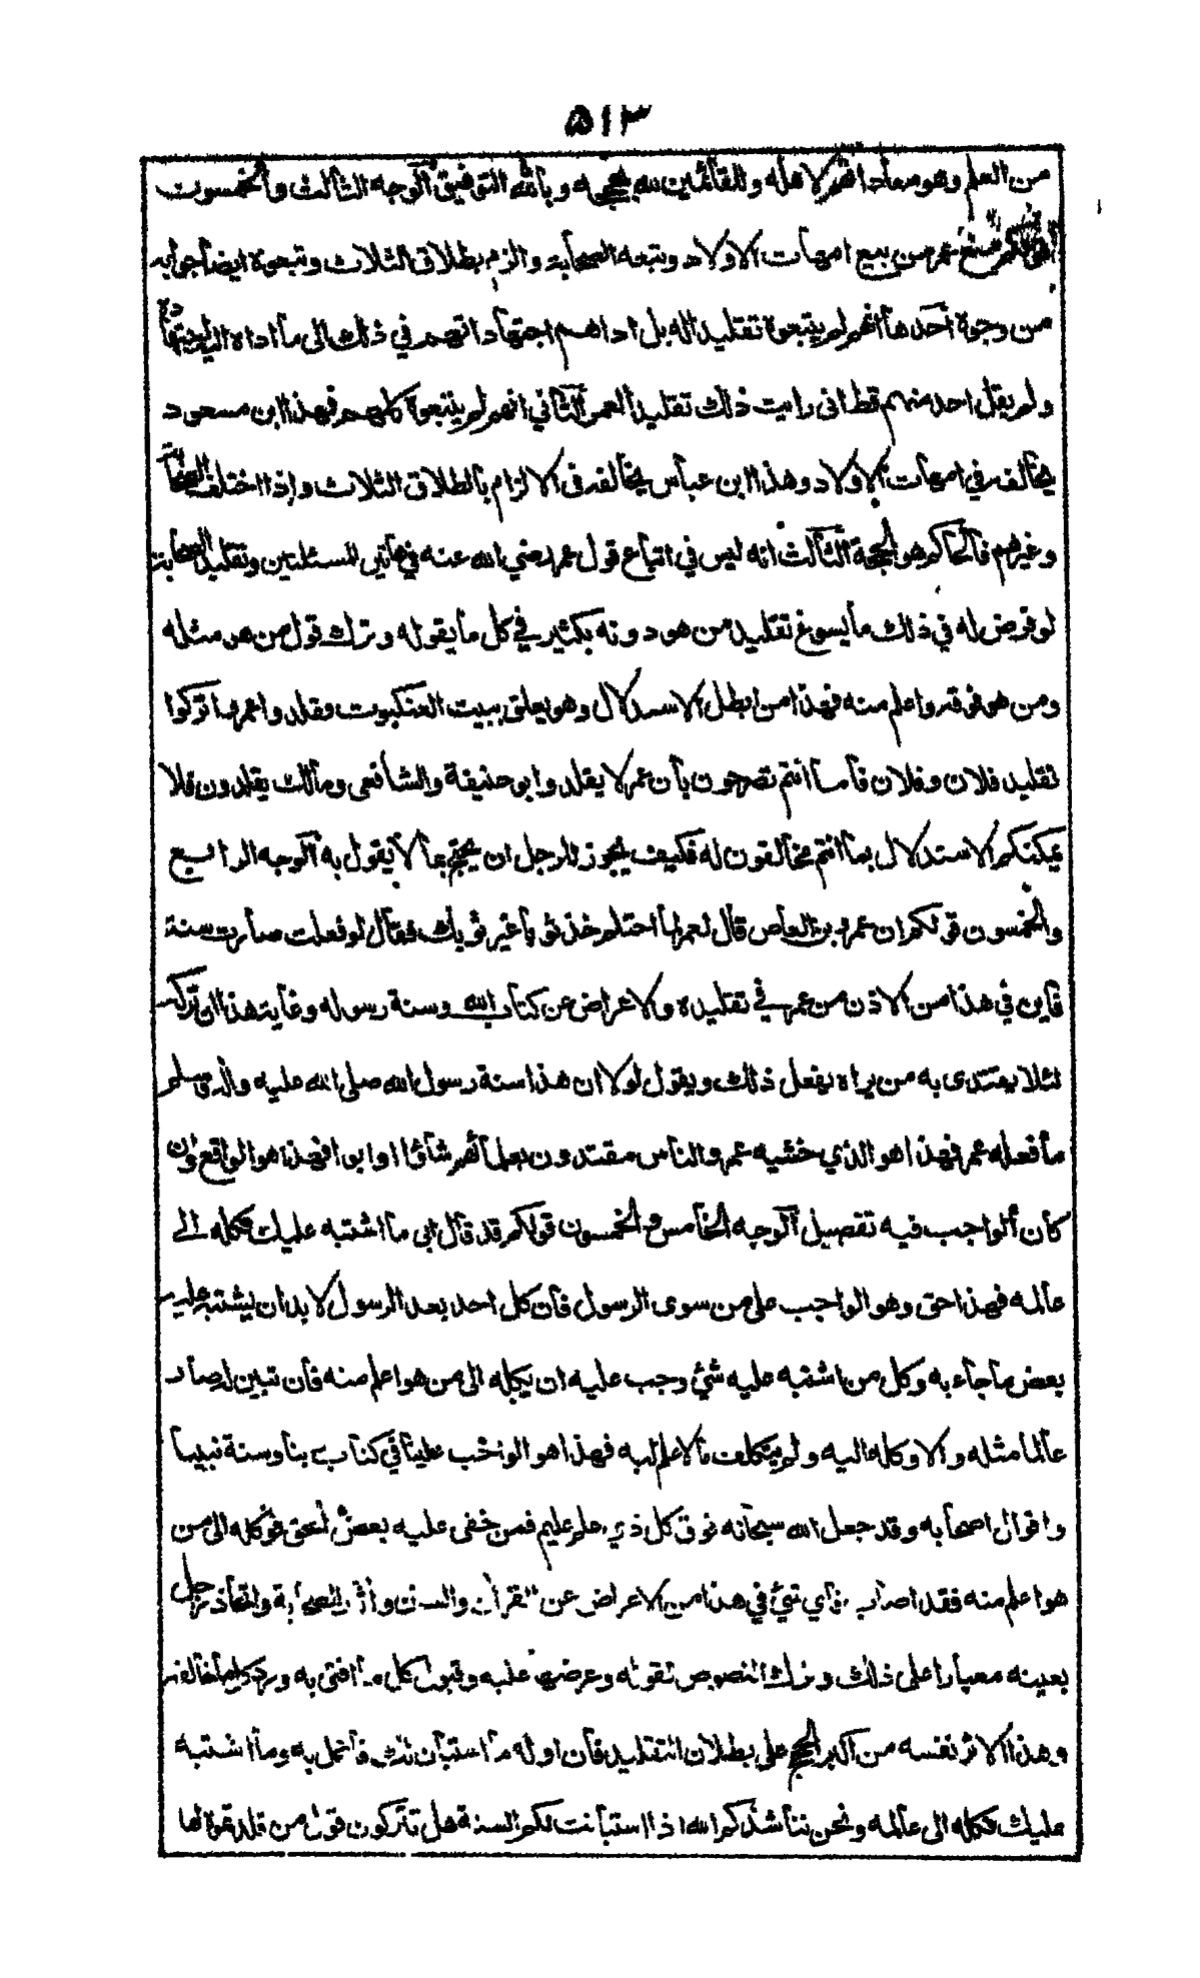 ٥١٣
من العلم وهو معاداتهم لاهله وللقائمين لله بحججه وبالله التوفيق الوجه الثالث والخمسون
قولكم منع عمر من بيع امهات الاولاد وتبعه الصحابة والزم بطلاق الثلاث وتبعوة ايضا جوابه
من وجوة احدها انهم لم يتبعوة تقليدا له بل اداهم اجتهاداتهم في ذلك الى ما اداه اليه اجتهاده
ولم يقل احد منهم قط انى رايت ذلك تقليدا لعمر الثاني انهم لم يتبعوة كلهم فهذا ابن مسعود
يخالفه في امهات الاولاد وهذا ابن عباس يخالفه فى الالزام بالطلاق الثلاث واذا اختلف الصحابة
وغيرهم فالحاكم هو الحجة الثالث انه ليس في اتباع قول عمر رضي الله عنه في هاتين المسئلتين وتقليد الصحابة
لو فرض له في ذلك ما يسوغ تقليد من هو دونه بكثير في كل ما يقوله وترك قول من هو مثله
ومن هو فوقه واعلم منه فهذا من ابطل الاستدلال وهو يعلق ببيت العنكبوت فقلدوا عمر واتركوا
تقليد فلان وفلان فاما انتم تصرحون بان عمر لا يقلد وابو حنيفة والشافعى ومالك يقلدون فلا
يمكنكم الاستدلال بما انتم مخالفون له فكيف يجوز للرجل ان يحتج بما لا يقول به الوجه الرابع
والخمسون قولكم ان عمرو بن العاص قال لعمر لما احتلم خذ ثوبا غير ثوبك فقال لو فعلت صارت سنة
فاين في هذا من الاذن من عمر في تقليده والاعراض عن كتاب الله وسنة رسوله وغاية هذا ان تركه
لئلا يقتدى به من يراه يفعل ذلك ويقول لولا ان هذا سنة رسول الله صلى الله عليه وآله وسلم
ما فعله عمر فهذا هو الذي خشيه عمر والناس مقتدون بعلمائهم شاؤا او ابوا فهذا هو الواقع وان
كان الواجب فيه تفصيل الوجه الخامس والخمسون قولكم قد قال ابى ما اشتبه عليك فكله الى
عالمه فهذا حق وهو الواجب على من سوى الرسول فان كل احد بعد الرسول لا بد ان يشتبه عليه
بعض ما جاء به وكل من اشتبه عليه شئ وجب عليه ان يكله الى من هو اعلم منه فان تبين له صار
عالما مثله والا وكله اليه ولم يتكلف ما لا علم له به فهذا هو الواجب علينا في كتاب ربنا وسنة نبينا
واقوال اصحابه وقد جعل الله سبحانه فوق كل ذي علم عليم فمن خفى عليه بعض الحق فوكله الى من
هو اعلم منه فقد اصاب فاي شئ في هذا من الاعراض عن القرآن والسنن وآثار الصحابة واتخاذ رجل
بعينه معيارا على ذلك وترك النصوص لقوله وعرضها عليه وقبول كل ما افتى به ورد كل ما خالفه
وهذا الاثر نفسه من اكبر الحجج على بطلان التقليد فان اوله ما استبان لك فاعمل به وما اشتبه
عليك فكله الى عالمه ونحن نناشدكم الله اذا استبانت لكم السنة هل تتركون قول من قلدتموة لها